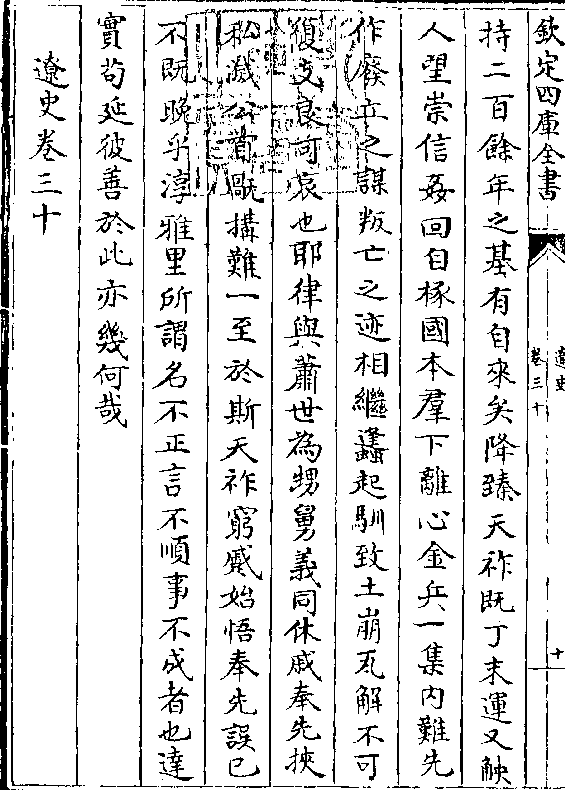 欽定四庫全書
遼史
卷三十
十
持二百餘年之基有自來矣降臻天祚既丁末運又觖
人望崇信姦回自椓國本羣下離心金兵一集内難先
作廢立之謀叛亡之迹相繼蠭起馴致土崩瓦解不可
復支良可哀也耶律與蕭世為甥舅義同休戚奉先挾
私滅公首禍搆難一至於斯天祚窮蹙始悟奉先誤已
不既晚乎淳雅里所謂名不正言不順事不成者也達
實苟延彼善於此亦幾何哉
遼史卷三十